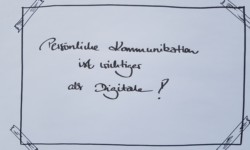 Persönliche Kommunikation
ist wichtiger
als Digitale!